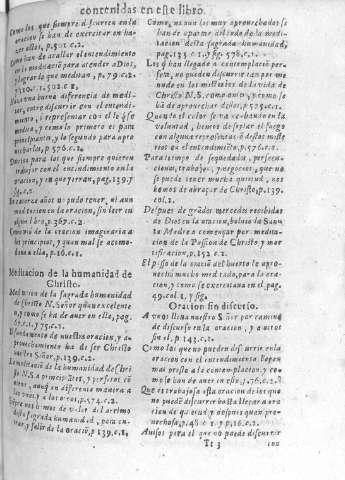 contenidas en este libro.
Como los que siempre discurren en la
oracion se han de exercitar en ha-
zer actos, p.501. c.2.
Como han de acallar el entendimiento
en la meditacion para atender a Dios,
y lograr lo que meditan, p.79. c.2.
buena diferencia de medi-
tar, entre discurrir con el entendi-
miento, i representar con el lo que se
medita, y como lo primero es para
principiantes, y lo segundo para
p.576. c.2.
Avisos para los que siempre quieren
trabajar con el entendimiento en la
oracion, y en que yerran, pag.139. y
En catorze años no pudo tener, ni aun
meditacion en la oracion, sin leer en
algun libro, p.367. c.2.
Como usò de la oracion imaginaria a
los principios, y quan mal se acomo-
dava a ella, p.16. c.1.
Meditacion de la humanidad de
Christo.
Meditacion de la sagrada humanidad
de Christo N. Señor que es excelente,
y como se ha de aver en ella, pag.
El fundamento de nuestra oracion, y a-
provechamiento ha de ser Christo
nuestro Señor. p.139. c.2.
La meditacion de la humanidad de Chri
sto N.S. a principiantes, y perfectos cõ
viene, aunq en diferente manera a
los unos, y a los otros, p.574. c.2.
Siempre nos hemos de valer del arrimo
de la sagrada humanidad, para en-
trar, y salir de la oraciõ, p.139. c.1.
Como, ni aun los muy aprovechados se
han de apartar del todo de la medi-
tacion desta sagrada humanidad,
pag.133 c.1. y sig. 578. c.1.
Los que han llegado a contemplaciõ per-
feta, no pueden discurrir tan por me-
nudo en los misterios de la vida de
Christo N.S. como antes, y como se
ha de aprovechar dellos, p.575. c.1.
Quando el calor se va acabando en la
voluntad, hemos de soplar el fuego
con algunas representaciones destos miste-
rios en el entendimiento, p.576. c.1.
Para tiempo de sequedades, persecu-
ciones, trabajos, y negocios, que no
se puede tener mucha quietud, nos
hemos de abraçar de Christo, p.139.
col.2.
Despues de grãdes mercedes recebidas
de Dios en la oracion, bolvia la Santa
Madre a començar por medita-
cion de la Passion de Christo y mor-
tificacion, p.152. c.2.
El passo de la oraciõ del huerto le apro-
vechó mucho meditado, para la oraci-
on, y como se exercitava en el pag.
49. col.2, y sig.
Oracion sin discurso.
A unos lleva nuestro Señor por camino
de discurso en la oracion, y a otros
sin el, p.143. c.1.
Como los que no pueden discurrir en la
oracion con el entendimiento llegan
mas presto a la contemplacion, y co
mo se han de aver en esto, p.76. c.2.
Que es trabajosa esta oracion de los que no
puedẽ discurrir hasta llegar a ora-
cion de quietud, y despues quan pro-
vechosa, p.48 c.1. y p.16. c.2.
Avisos para el que no puede discurrir
Tt 3
con